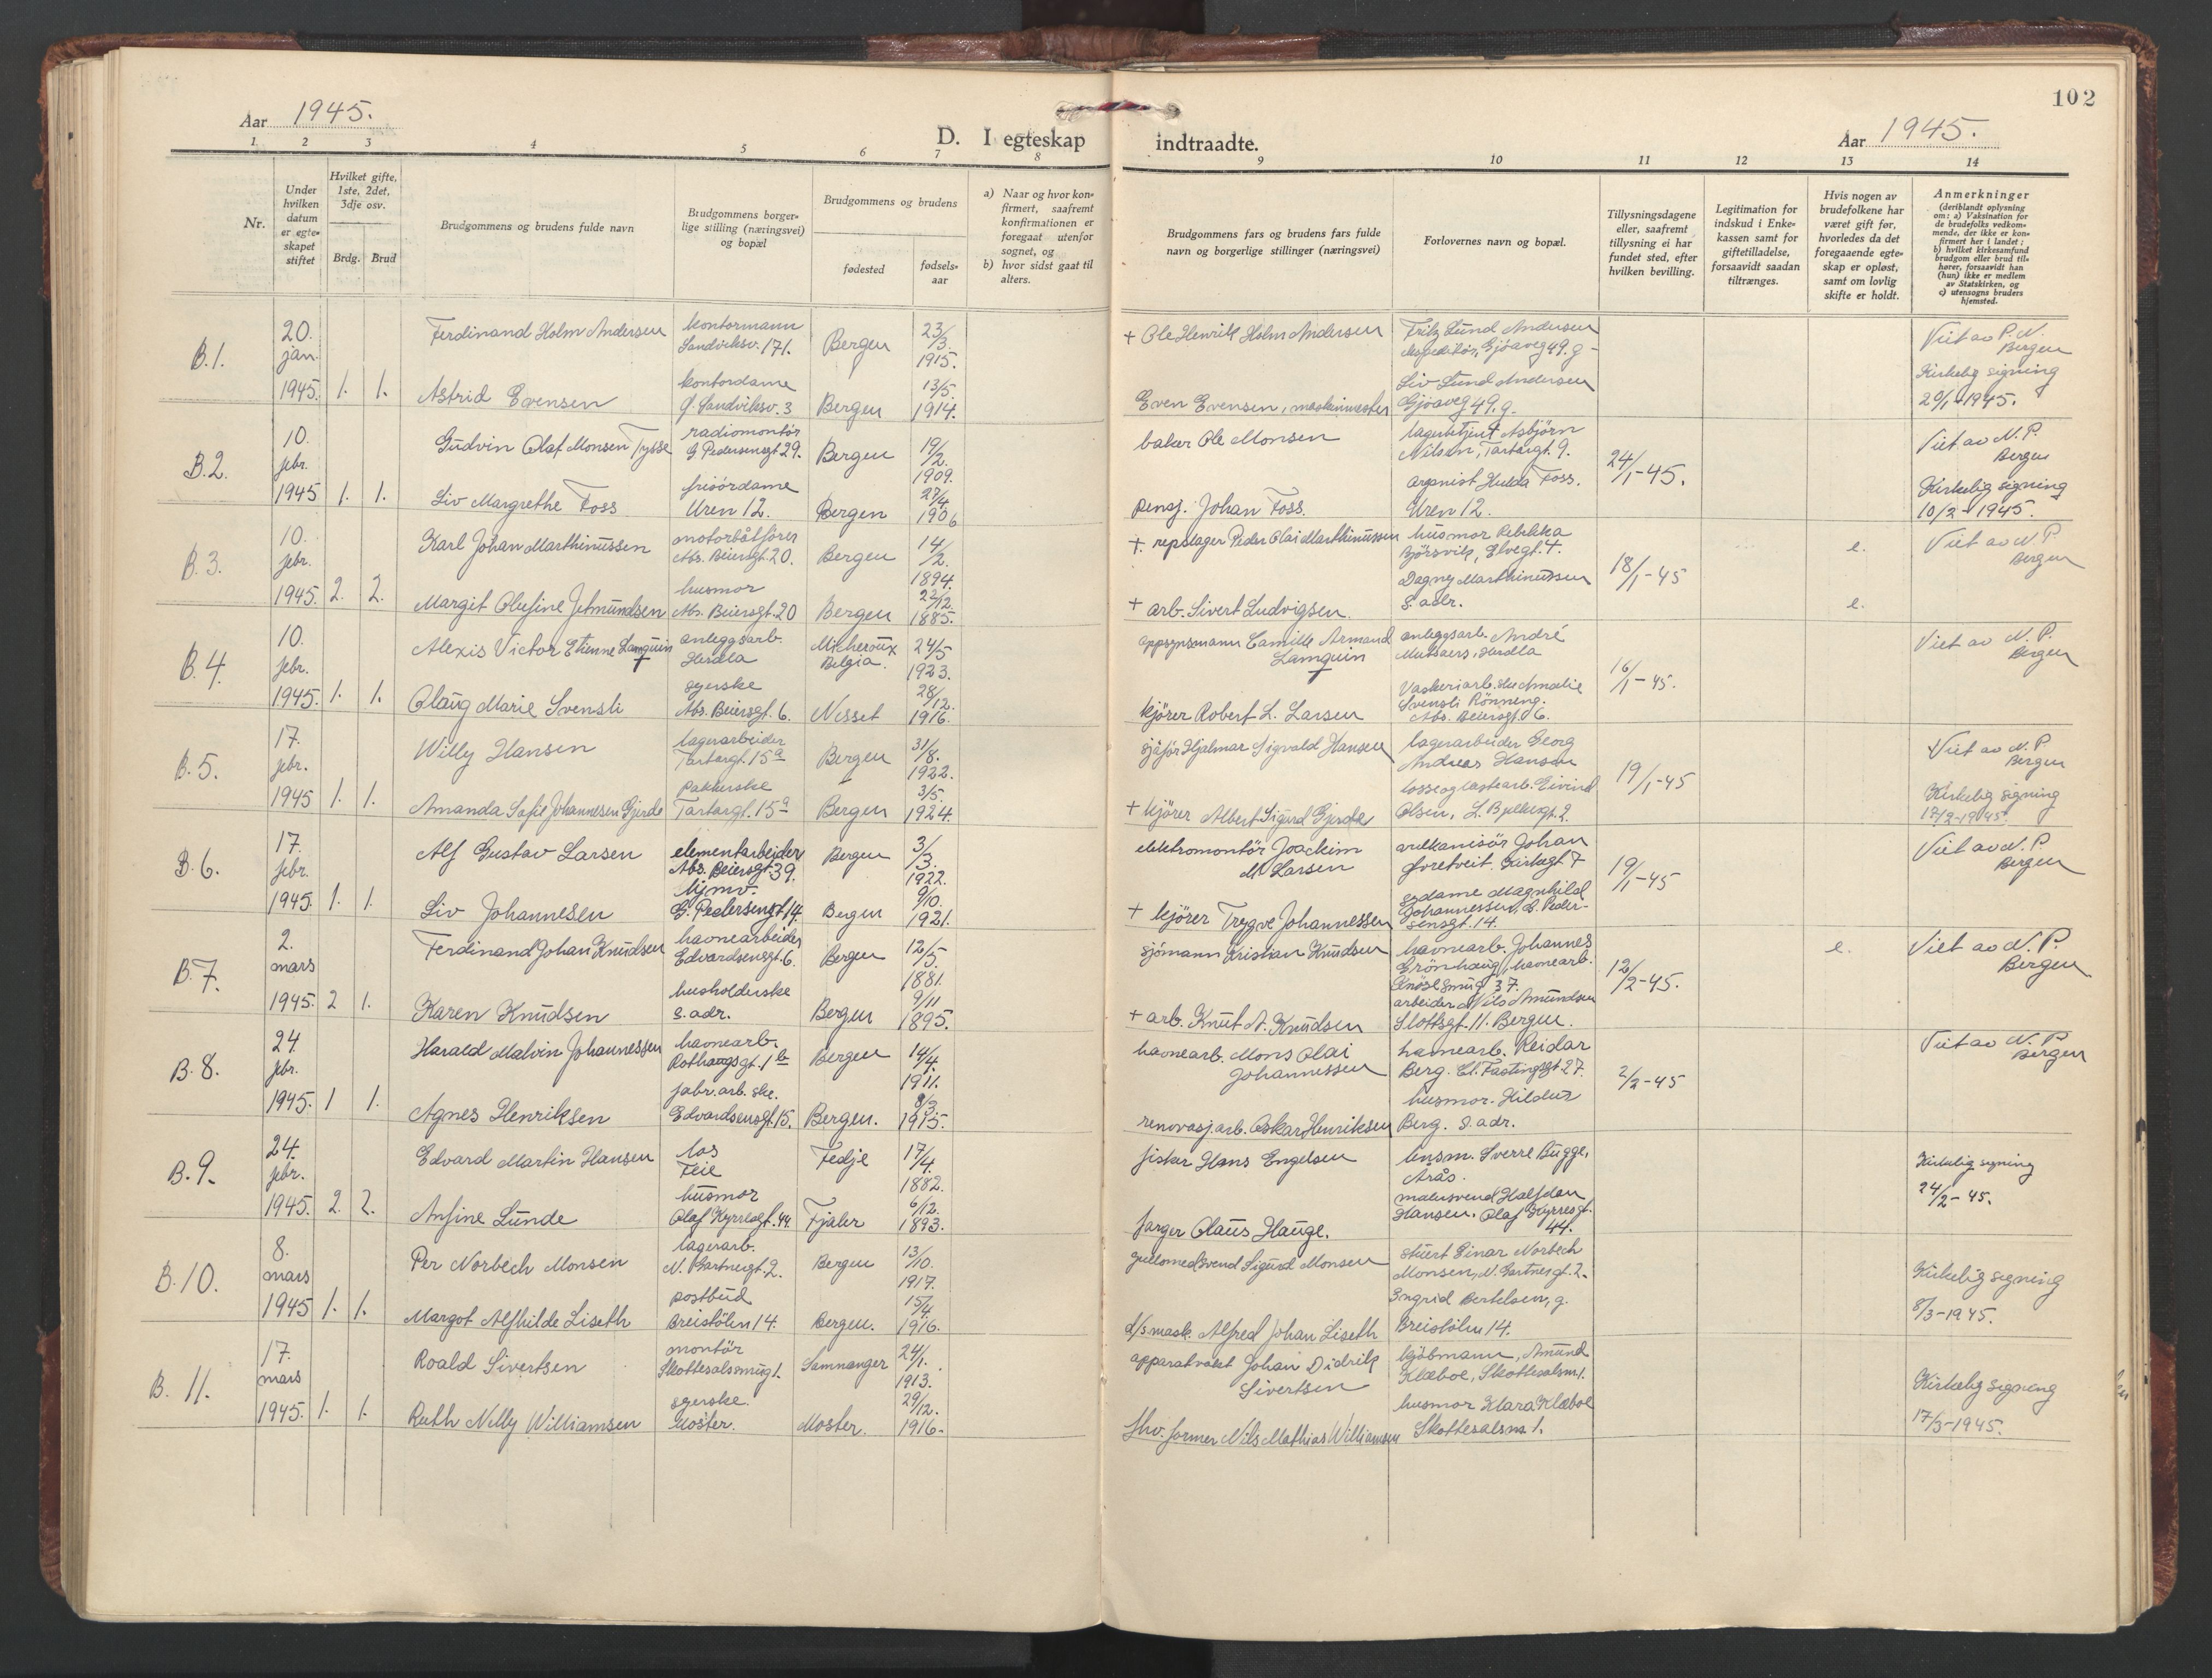 102
Aar 1945.
D. I egteskap indtraadte.
Aar 1945.
1 2 3 4 5 6 7 8 9 10 11 12 13 14
Nr.
Under hvilken datum er egteskapet stiftet
Hvilket gifte, 1ste, 2det, 3dje osv.
Brdg. Brud
Brudgommens og brudens fulde navn
Brudgommens borgerlige stilling (næringsvei) og bopæl
Brudgommens og brudens
fødested
fødselsaar
a) Naar og hvor konfirmert, saafremt konfirmationen er foregaat utenfor sognet, og
b) hvor sidst gaat til alters.
Brudgommens fars og brudens fars fulde navn og borgerlige stillinger (næringsvei)
Forlovernes navn og bopæl.
Tillysningsdagene eller, saafremt tillysning ei har fundet sted, efter hvilken bevilling.
Legitimation for indskud i Enkekassen samt for giftetilladelse, forsaavidt saadan tiltrænges.
Hvis nogen av brudefolkene har været gift før, hvorledes da det foregaaende egteskap er opløst, samt om lovlig skifte er holdt.
Anmerkninger
(deriblandt oplysning om: a) Vaksination for de brudefolks vedkommende, der ikke er konfirmert her i landet; b) hvilket kirkesamfund brudgom eller brud tilhører, forsaavidt han (hun) ikke er medlem av Statskirken, og c) utensogns bruders hjemsted.
B.1. 20. jan. 1945. 1. 1.
Ferdinand Holm Andersen kontormann Sandviksv. 171. Bergen 23/3. 1915.
+ Ole Henrik Holm Andersen
Fritz Lund Andersen ekspeditør, Gjøaveg 49. g-
Viet av P.N. Bergen
Astrid Evensen kontordame Ø. Sandviksv. 3 Bergen 13/5. 1914.
Even Evensen, maskinmester
Liv Lund Andersen Gjøaveg 49. g.
Kirkelig signing 20/1-1945.
B.2. 10. febr. 1945 1. 1.
Gudvin Olaf Monsen Tysse radiomontør G. Pedersensgt 29. Bergen 19/2. 1909.
baker Ole Monsen
lagerbetjent Asbjörn Nilsen, Tartargt. 9.
24/1-45.
Viet av N.P. Bergen
Liv Margrethe Foss frisördame Uren 12. Bergen 27/4 1906
pensj. Johan Foss.
organist Hulda Foss. Uren 12.
Kirkelig signing 10/2-1945.
B.3. 10. febr. 1945. 2. 2.
Karl Johan Marthinussen motorbåtförer Abs. Beiersgt. 20. Bergen 14/2. 1894.
+. repslager Peder Olai Marthinussen
husmor Rebekka Björsvik, Elvegt. 4.
18/1-45
e.
Viet av N.P. Bergen
Margit Olufine Jetmundsen husmor Abs. Beiersgt. 20 Bergen 22/12. 1885.
+ arb. Sivert Ludvigsen.
Dagny Marthinussen s. adr.
e.
B.4. 10. febr. 1945. 1. 1.
Alexis Victor Etienne Lamquin anleggsarb. Herdla Micheroux Belgia. 24/5 1923.
oppsynsmann Camille Armand Lamquin
anleggsarb. André Mutsaers, Herdla
16/1-45.
Viet av N.P. Bergen
Olaug Marie Svensli syerske Abs. Beiersgt. 6. Nesset 28/12. 1916.
kjörer Robert L. Larsen
Vaskeriarb.ske Amalie Svensli Rönning. Abs. Beiersgt. 6.
B.5. 17. febr. 1945 1. 1.
Willy Hansen lagerarbeider Tartargt. 15a Bergen 31/8. 1922.
sjåför Hjalmar Sigvald Hansen
lagerarbeider Georg Andreas Hansen
19/1-45
Viet av N.P. Bergen
Amanda Sofie Johannesen Gjerde pakkerske Tartargt. 15a Bergen 3/5. 1924.
+ kjörer Albert Sigurd Gjerde
losse og lastearb. Eivind Olsen,
Kirkelig signing 17/2-1945.
B.6. 17. febr. 1945. 1. 1.
Alf Gustav Larsen elementarbeider Abs. Beiersgt. 39. Bergen 3/3. 1922.
elektromontör Joackim M Larsen
vulkanisör Johan
19/1-45
Viet av N.P. Bergen
Liv Johannesen hjmv. G. Pedersensgt 14. Bergen 9/10. 1921.
+ kjörer Trygve Johannessen
sydame Magnhild Johannessen, G. Pedersensgt. 14.
B.7. 2. mars 1945. 2 1.
Ferdinand Johan Knudsen havnearbeider Edvardsensgt. 6. Bergen 12/5. 1881.
sjömann Kristian Knudsen
havnearb. Johannes Grönhaug, havnearb. 37.
12/2-45.
e.
Viet av N.P. Bergen
Karen Knudsen husholderske s. adr. Bergen 9/11 1895.
+ arb. Knut A. Knudsen
arbeider Nils Amundsen Slottsgt. 11. Bergen.
B.8. 24 febr. 1945. 1 1.
Harald Malvin Johannessen havnearb. Rothaugsgt. 1b Bergen 14/4. 1911.
havnearb. Mons Olai Johannessen
havnearb. Reidar Berg. Cl. Fastingsgt 27.
2/2-45
Viet av N.P. Bergen
Agnes Henriksen fabr.arb.ske. Edvardsensgt. 15. Bergen. 8/3. 1915.
renovasj.arb. Oskar Henriksen
husmor. Hildur Berg. s. adr.
B.9. 24. febr. 1945. 2. 2.
Edvard Martin Hansen los Feie Fedje 17/4. 1882.
fisker Hans Engelsen
lensm. Sverre Bugge, Arås.
Kirkelig signing 24/2-45.
Anfine Lunde husmor Olaf Kyrresgt. 44 Fjaler 6/12. 1893.
farger Olaus Hauge.
malersvend Halfdan Hansen. Olaf Kyrresgt. 44.
B.10. 8. mars 1945 1. 1.
Per Norbech Monsen lagerarb. N. Gartnergt. 2. Bergen 13/10. 1917.
gullsmedsvend Sigurd Monsen
stuert Einar Norbech Monsen, N. Gartnergt. 2.
Kirkelig signing 8/3-1945.
Margot Alfhilde Liseth postbud Breistölen 14. Bergen. 15/4. 1916.
d/s mask. Alfred Johan Liseth
Ingrid Bertelsen, g. Breistölen 14.
B. 11. 17. mars 1945. 1. 1.
Roald Sivertsen montör Skottesalsmug 1. Samnanger 24/1. 1913.
apparatvakt Johan Didrik Sivertsen
kjöbmann, Amund Klæboe, Skottesalsm. 1.
Kirkelig signing 17/3-1945.
Ruth Nelly Williamsen syerske. Moster. Moster. 29/12. 1916.
Hv. former Nils Mathias Williamsen
husmor Klara Klæboe Skottesalsm. 1.